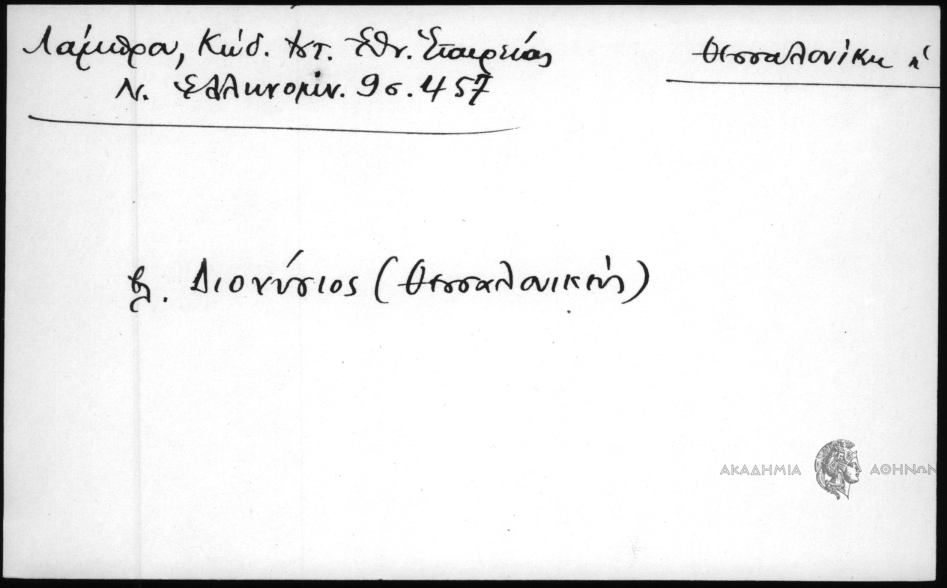 Λάμπρου, Κώδ. Ἱστ. Ἐθν. Ἑταιρείας
Ν. Ἑλληνομν. 9 σ. 457
Θεσσαλονίκη
βλ. Διονύσιος (Θεσσαλονικεύς)
ΑΚΑΔΗΜΙΑ ΑΘΗΝΩΝ